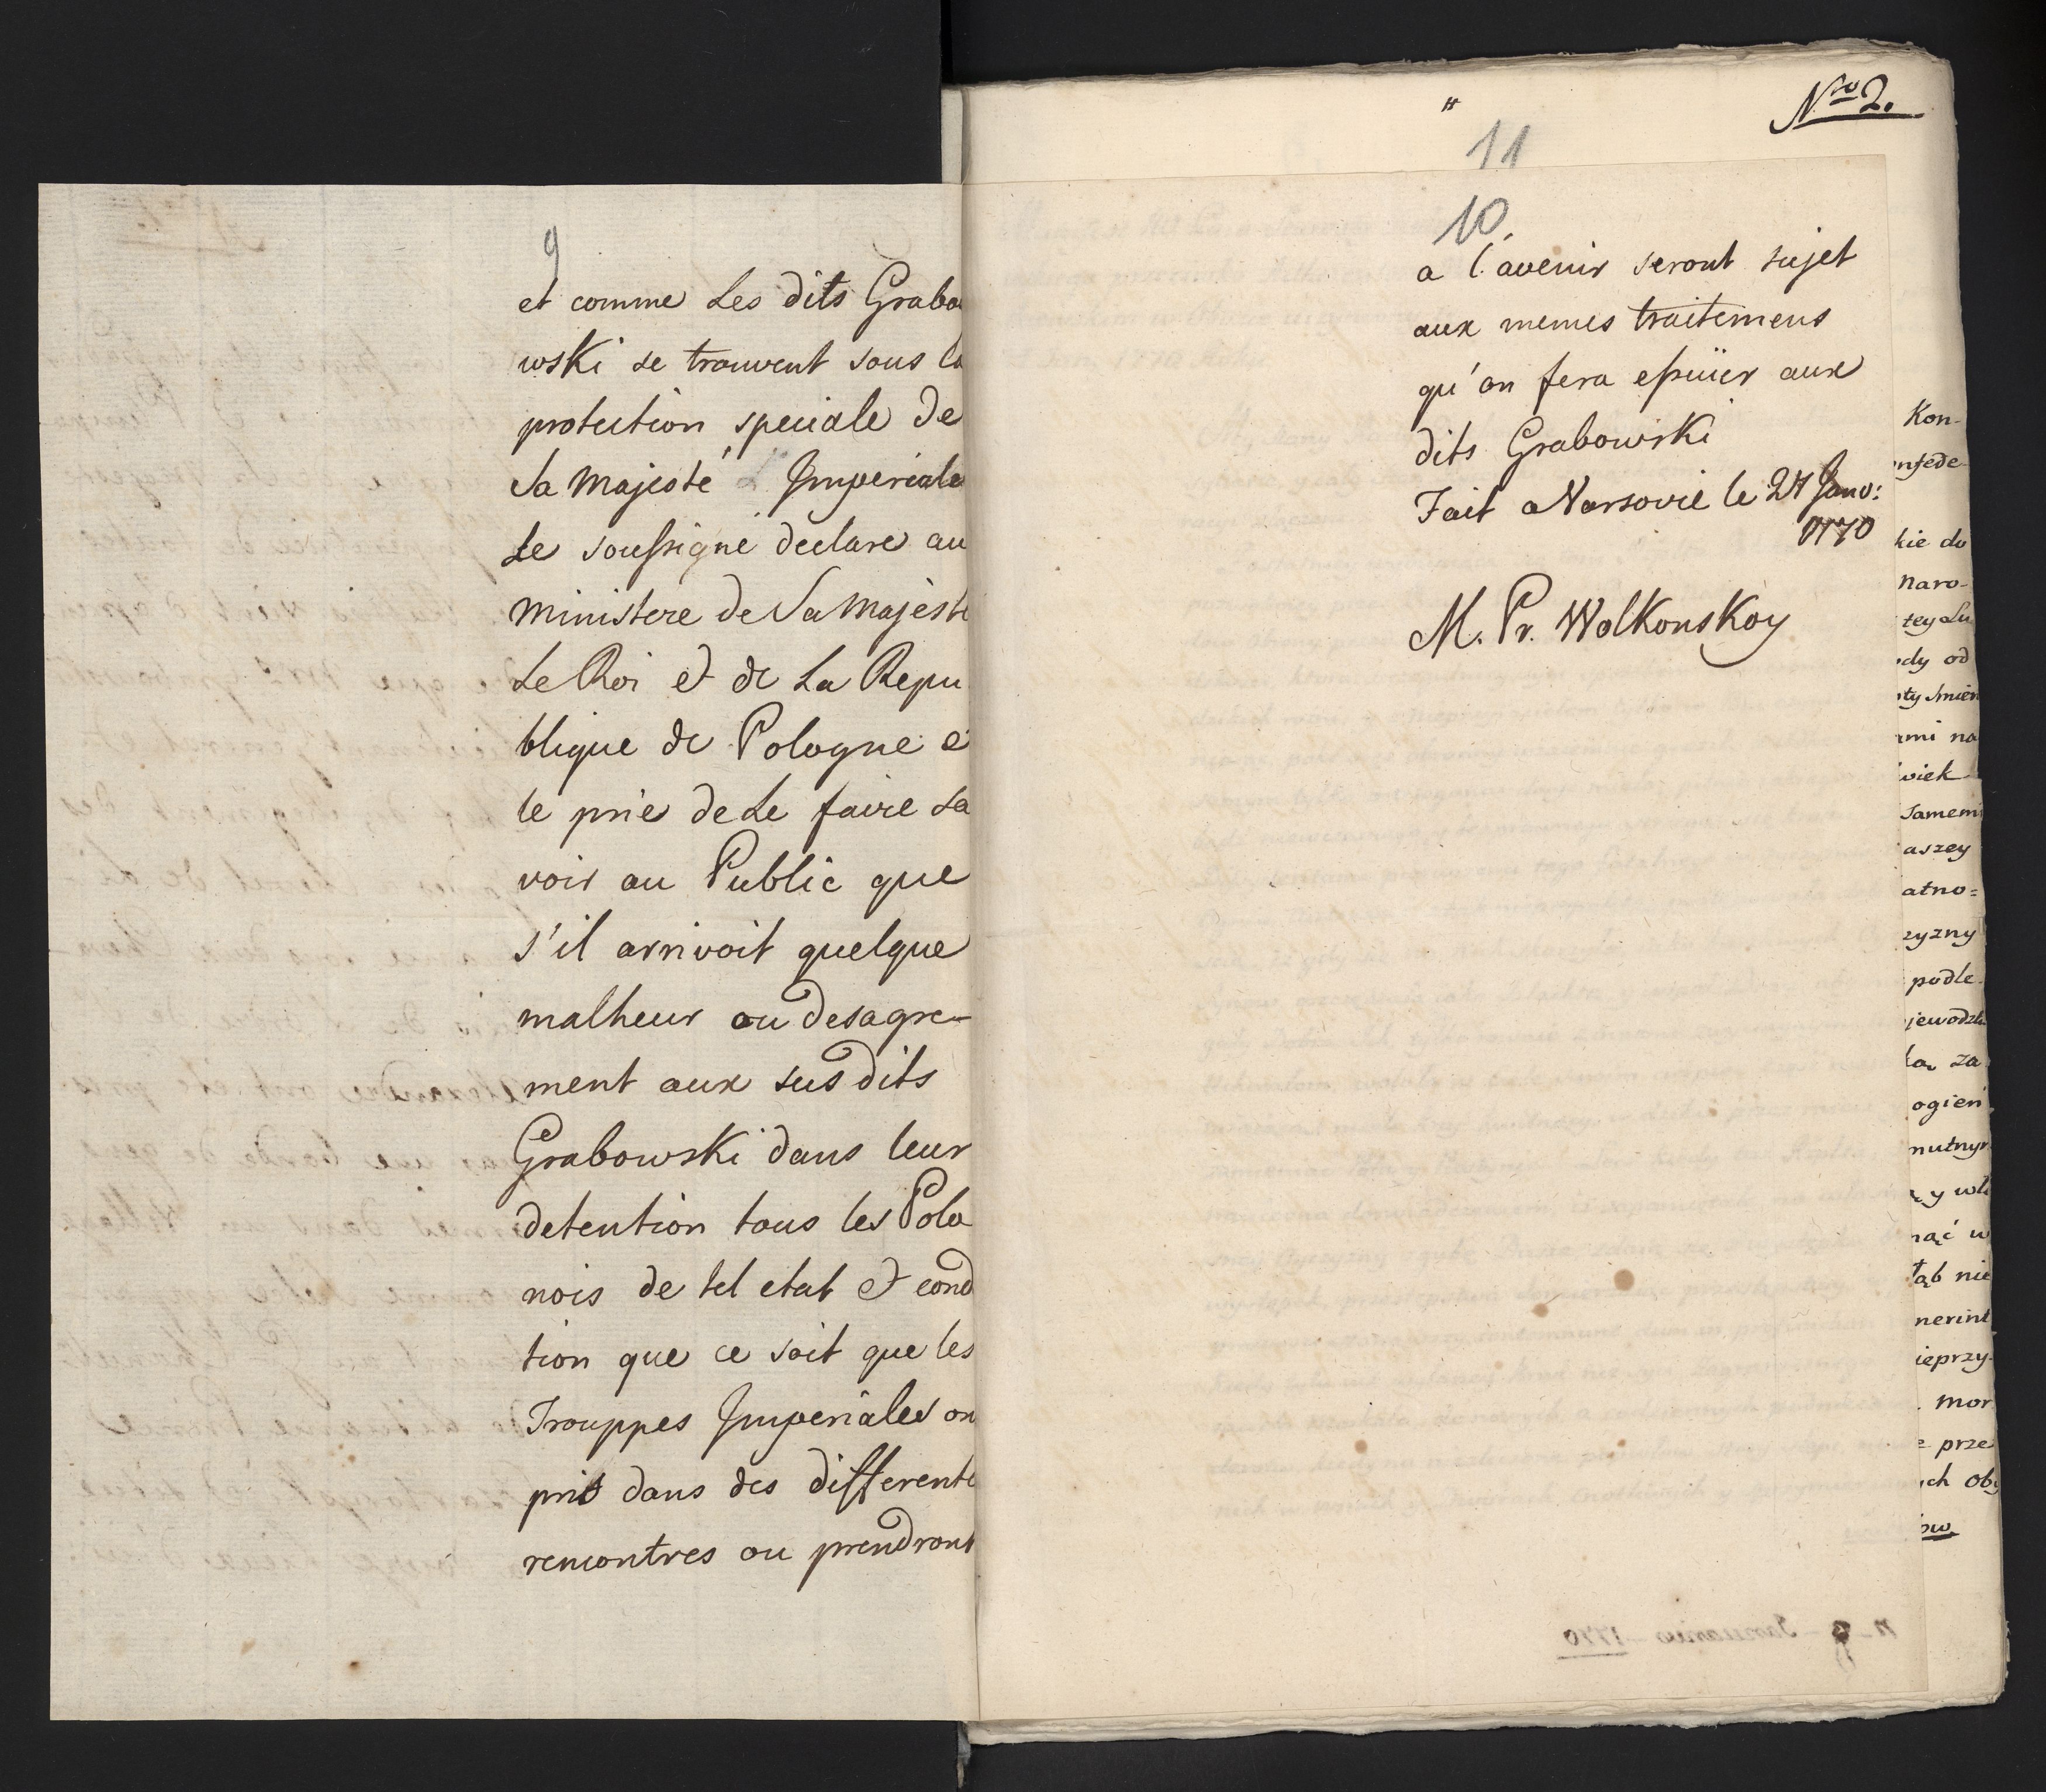 9
et comme Les dits Grabo
wski se trouvent sous la
protection speciale de
Sa Majesté Imperiale
Le soussigné declare au
Ministere de Sa Majesté
Le Roi et de La Repu
blique de Pologne e
le prie de Le faire Sa
voir au Public que
s'il arrivoit quelque
malheur ou desagre-
ment aux sus dits
Grabowski dans leur
detention tous les Polo
nois de tel etat et cond
tion que ce soit que les
Trouppes Imperiales on
pris dans des differente
rencontres ou prendront
Nro 2.
11
10.
a l'avenir seront sujet
aux memes traitemens
qu'on fera essuüer aux
dits Grabowski
Fait a Varsovie le 24 Janv:
1770
M. Pr. Wolkonskoy
Kon-
nfede-
kie do
Naro-
tey Lu
dy od
oty Smier
ami na
wiek
Samemi
aszey
atno=
zyzny
podle-
jewodz
ka, za
ogień
nutnyn
y wł
nąć w
łąb nie
nerint
ieprzy-
mor
e prze
ych oby
ów.